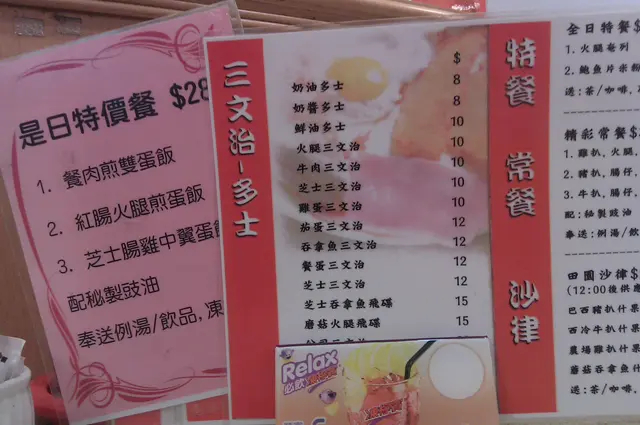 是日特價餐 $28
1. 餐肉煎雙蛋飯
2. 紅腸火腿煎蛋飯
3. 芝士腸雞中翼蛋飯
配秘製豉油
奉送例湯/飲品,凍
三文治-多士
$
奶油多士 8
奶醬多士 8
鮮油多士 10
火腿三文治 10
牛肉三文治 10
芝士三文治 10
雞蛋三文治 10
茄蛋三文治 12
吞拿魚三文治 12
餐蛋三文治 12
芝士三文治 12
芝士吞拿魚飛碟 15
蘑菇火腿飛碟 15
Relax
必飲
特餐
全日特餐$
1. 火腿卷列
2. 鮑魚片米粉
送:茶/咖啡,
常餐
精彩常餐$
1. 雞扒,火腿,
2. 豬扒,腸仔,
3. 牛扒,腸仔,
配:秘製豉油
奉送:例湯/飲
沙律
田園沙律$
(12:00後供應
巴西豬扒什果
西冷牛扒什果
農場雞扒什果
蘑菇吞拿魚什
送:茶/咖啡,